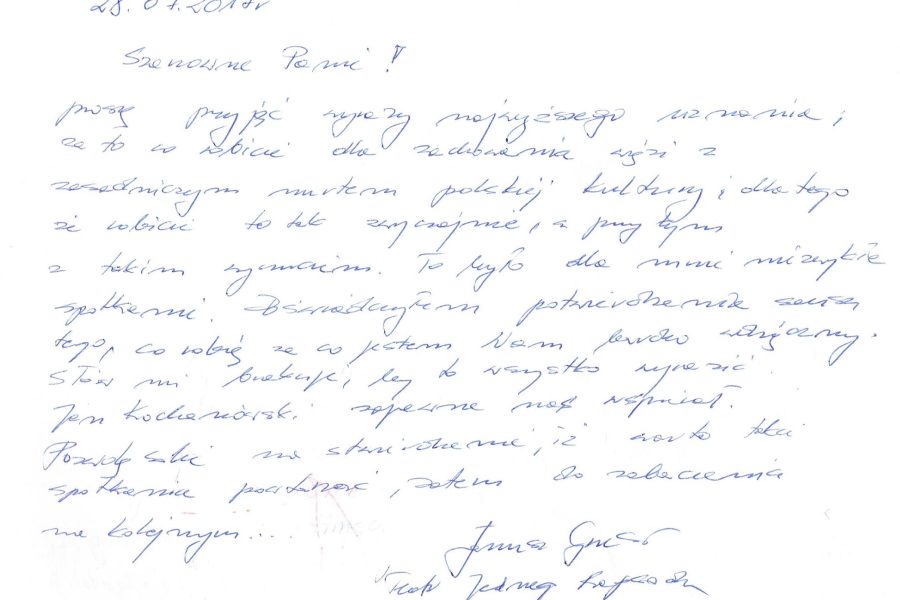 28.07.2017r
Szanowne Panie!
proszę przyjąć wyrazy najwyższego uznania,
za to co robicie dla zachowania więzi z
zasadniczym nurtem polskiej kultury i dlatego
że robicie to tak zwyczajnie, a przy tym
z takim wyczuciem. To było dla mnie niezwykłe
spotkanie. Doświadczyłem potwierdzenia sensu
tego, co robię za co jestem Wam bardzo wdzięczny.
Słów mi brakuje, by to wszystko wyrazić.
Jan Kochanowski zapewne nas wspierał.
na stwierdzenie, iż warto takie
spotkania powtarzać, zatem do zobaczenia
na kolejnym....
Janusz
Teatr Jednego